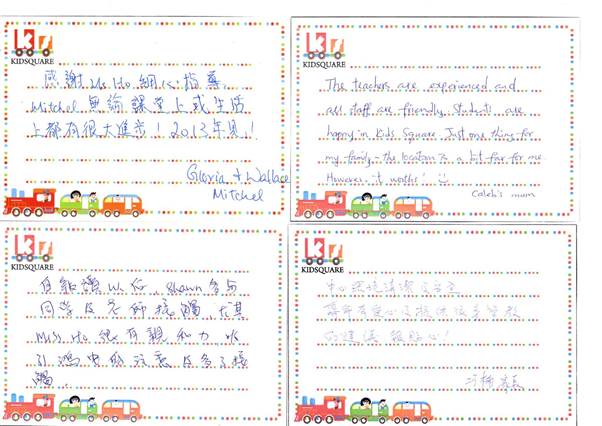 KIDSQUARE
感謝 Ms Ho 細心指導,
Mitchel 無論課堂上或生活
上都有很大進步! 2013年見!
Gloria + Wallace
Mitchel
KIDSQUARE
The teachers are experienced and
all staff are friendly. Students are
happy in Kids Square. Just one thing for
my family - the location is a bit far for me.
However, it worths!
Caleb's mum
KIDSQUARE
自報讀以後, Shawn 多與
同學及老師接觸, 尤其
Miss Ho 很有親和力, 吸
引
注意及多了接
觸.
KIDSQUARE
中心環境清潔及安全
導師有愛心及提供很多管教
的建議, 很貼心!